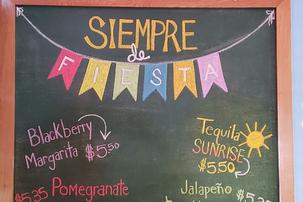 SIEMPRE
de
FIESTA
Blackberry
Margarita $5.50
Tequila
SUNRISE
$5.50
$5.35 Pomegranate
Jalapeño